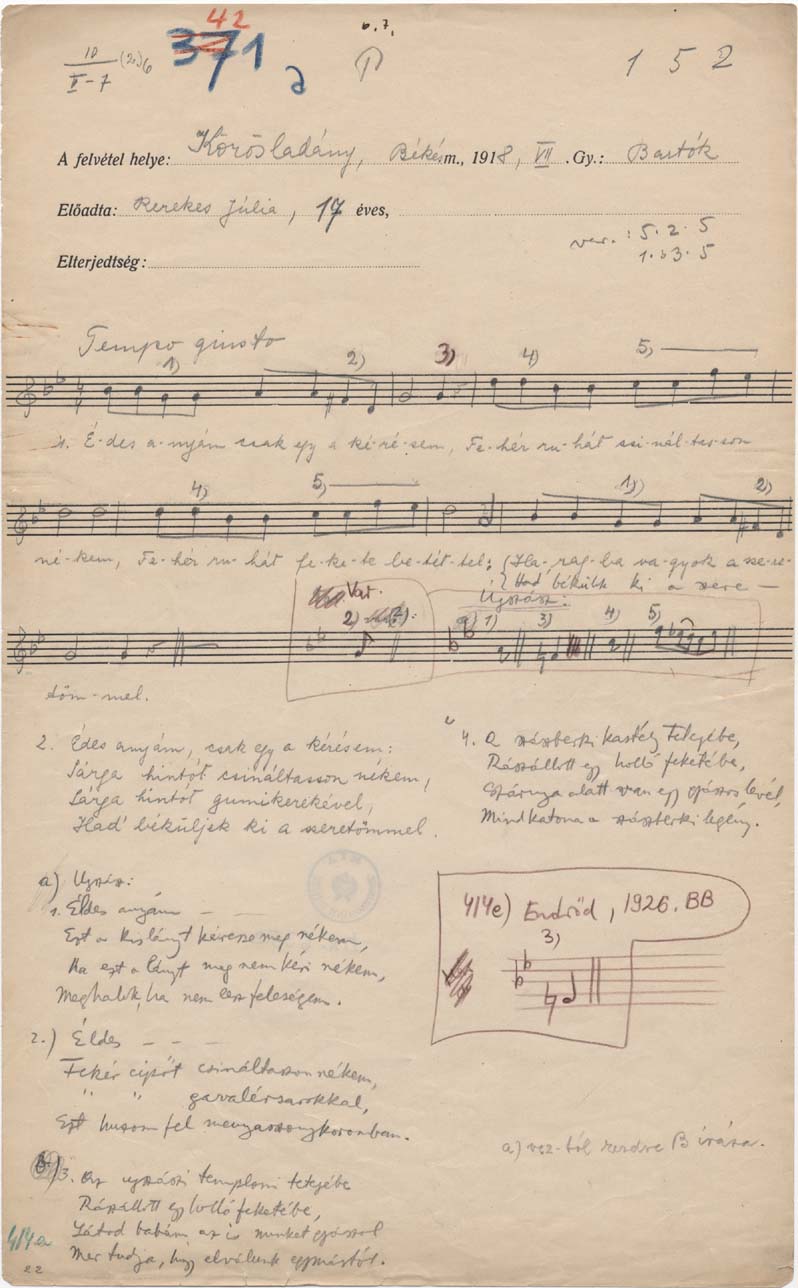 42
371
152
10
II-7
A felvétel helye: Körösladány, Békésm., 1918, VII. Gy.: Bartók
Előadta: Kerekes Júlia, 17 éves,
var.: 5. 2. 5
1. 3. 5
Elterjedtség:
Tempo giusto
1) 2) 3) 4) 5)
1. É-des a-nyám csak egy a ké-ré-sem, Fe-hér ru-hát csi-nál-tas-son
4) 5) 1) 2)
né-kem, Fe-hér ru-hát fe-ke-te be-tét-tel; Ha-rag-ba va-gyok a sze-re-
Had békülk ki a szere-
Var. Ujszász:
2) a) 1) 3) 4) 5)
tőm-mel.
2. Édes anyám, csak egy a kérésem:
Sárga hintót csináltasson nékem,
Sárga hintót gumikerékével,
Had' béküljek ki a szeretőmmel.
4. A szászberki kastély tetejébe,
Rászállott egy holló feketébe,
Szárnya alatt van egy gyászos levél,
Mind katona a szászberki legény.
a) Ujszász:
1. Éldes anyám — —
Ezt a kislányt kéresse meg nékem,
Ha ezt a lányt meg nem kéri nékem,
Meghalok, ha nem lesz feleségem.
4/4e) Endrőd, 1926. BB
3)
2.) Éldes — — —
Fekér cipőt csináltasson nékem,
" " gavalérsarokkal,
Ezt huzom fel menyasszonykoromban.
a) vez-től kezdve B írása.
3. Az ujszászi templom tetejébe
Rászállott egy holló feketébe,
Látod babám, az is munket gyászol
Mer tudja, hogy elválunk egymástól.
4/4a
22